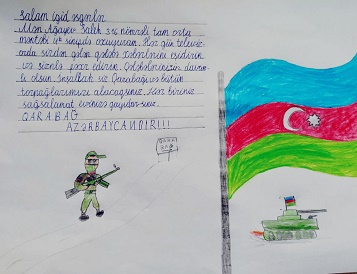 Salam igid əsgərlər
Mən Ağayev Saleh 316 nömrəli tam orta
məktəbi 4ᵇ sinifdə oxuyuram. Hər gün televiz-
orda sizdən gələn qələbə xəbərlərini eşidirik
və sizinlə fəxr edirik. Qələbələriniz davam-
lı olsun. İnşallah siz Qarabağı və bütün
torpağlarımızı alacaqsınız. Hər biriniz
sağsalamat evinizə qayıdarsınız.
QARABAĞ
AZƏRBAYCANDIR!!!